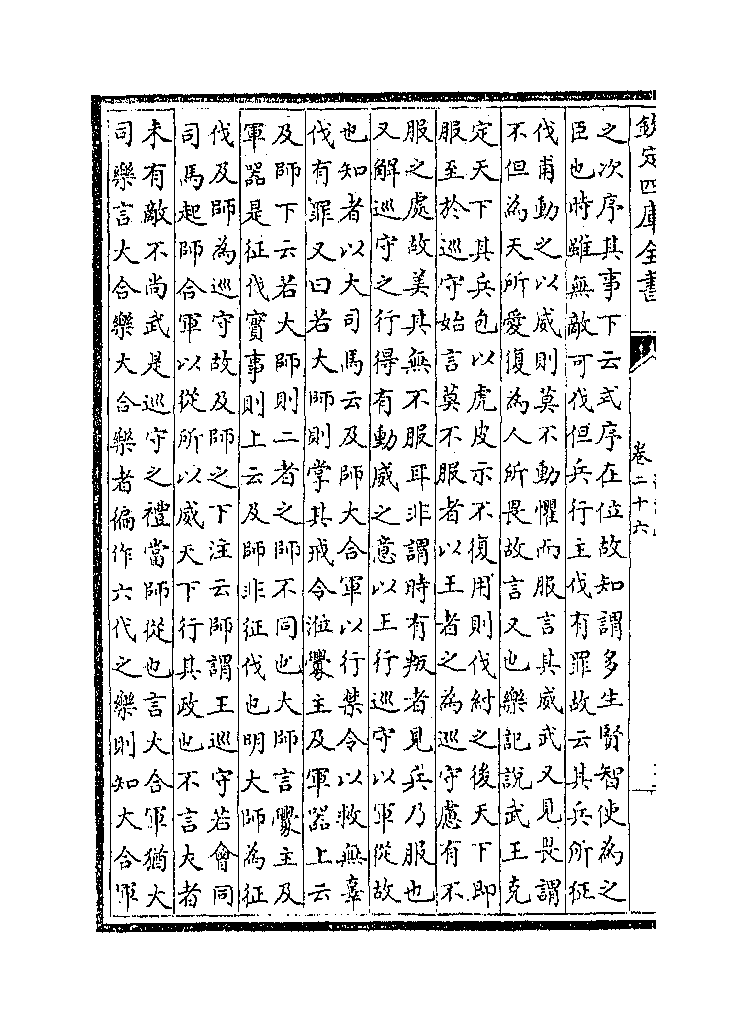 欽定四庫全書
卷二十六
之次序其事下云式序在位故知謂多生賢智使為之
臣也時雖無敵可伐但兵行主伐有罪故云其兵所征
伐甫動之以威則莫不動懼而服言其威武又見畏謂
不但為天所愛復為人所畏故言又也樂記說武王克
定天下其兵包以虎皮示不復用則伐紂之後天下即
服至於巡守始言莫不服者以王者之為巡守慮有不
服之處故美其無不服耳非謂時有叛者見兵乃服也
又解巡守之行得有動威之意以王行巡守以軍從故
也知者以大司馬云及師大合軍以行禁令以救無辜
伐有罪又曰若大師則掌其戒令涖釁主及軍器上云
及師下云若大師則二者之師不同也大師言釁主及
軍器是征伐實事則上云及師非征伐也明大師為征
伐及師為巡守故及師之下注云師謂王巡守若會同
司馬起師合軍以從所以威天下行其政也不言大者
未有敵不尚武是巡守之禮當師從也言大合軍猶大
司樂言大合樂大合樂者徧作六代之樂則知大合軍